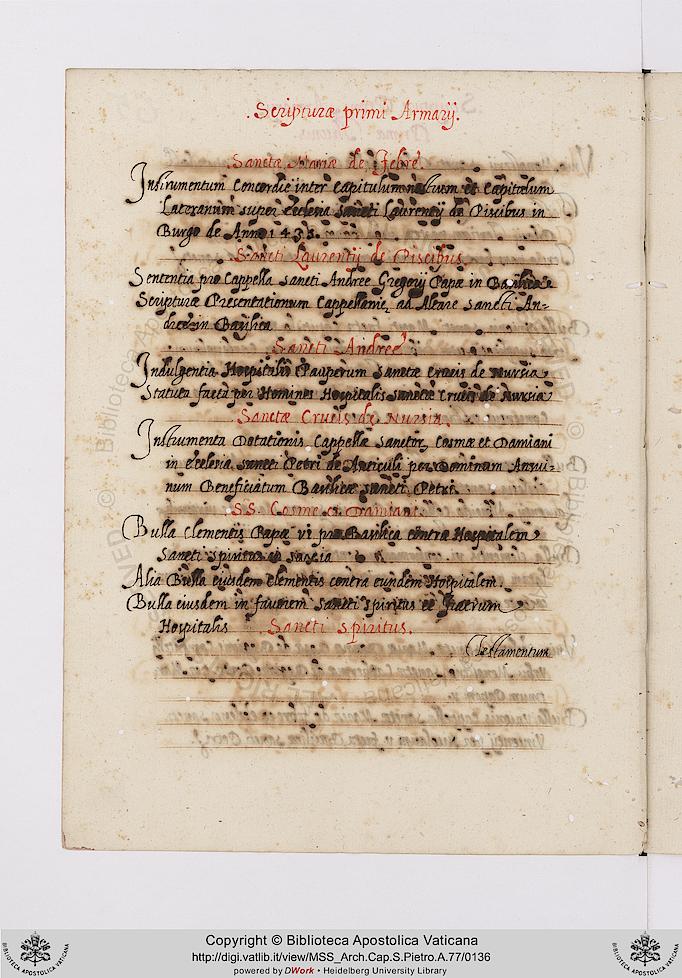 .Scripturæ primi Armarij.
Sanctæ Mariæ de Febre.
Instrumentum Concordie inter Capitulum nostrum et Capitulum
Lateranum super Ecclesia Sancti Laurentij de Piscibus in
Burgo de Anno 1438.
Sancti Laurentij de Piscibus.
Sententia pro Cappella Sancti Andree Gregorij Papæ in Basilica
Scripturæ Presentationum Cappellanie, ad Altare Sancti An-
dree in Basilica
Sancti Andree
Indulgentia Hospitalis Pauperum Sanctæ Crucis de Nursia
Statuta facta per Homines Hospitalis Sanctæ Crucis de Nursia
Sanctæ Crucis de Nursia.
Instrumenta Dotationis Cappellæ Sanctor, Cosmæ et Damiani
in Ecclesia Sancti Petri de Anticuli per Dominum Angui-
num Beneficiatum Basilicæ Sancti Petri
SS. Cosme et Damiani.
Bulla Clementis Papæ VI pro Basilica contra Hospitalem
Sancti Spiritus in Saxia
Alia Bulla eiusdem Clementis contra eundem Hospitalem.
Bulla eiusdem in favorem Sancti Spiritus et Fratrum
Hospitalis Sancti Spiritus.
Testamentum
Copyright © Biblioteca Apostolica Vaticana
http://digi.vatlib.it/view/MSS_Arch.Cap.S.Pietro.A.77/0136
powered by DWork • Heidelberg University Library